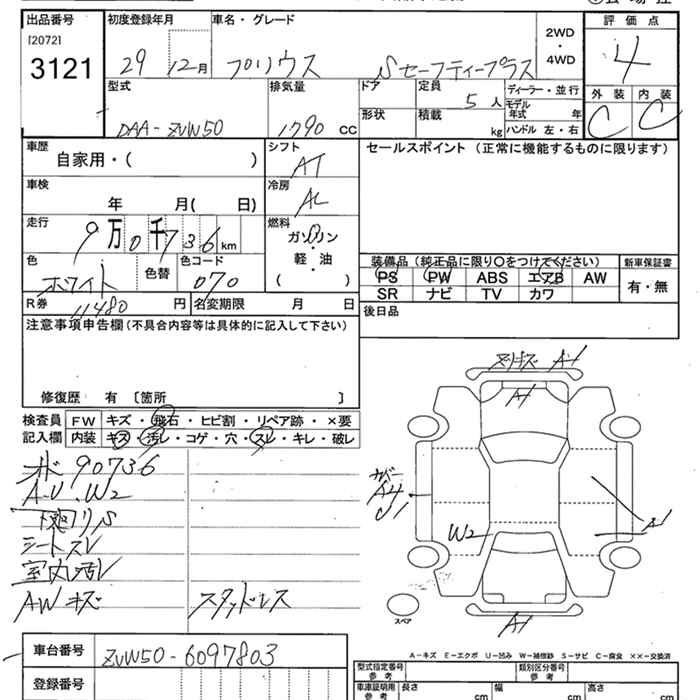 出品番号 初度登録年月 車名・グレード 2WD・4WD 評価点
[2072]
3121 29 12月 プリウス Sセーフティープラス 4
型式 排気量 ドア 定員 5人 ディーラー・並行 外装 内装
形状 積載 kg モデル年式 年 C C
DAA-ZVW50 1790 CC ハンドル 左・右
車歴 シフト セールスポイント (正常に機能するものに限ります)
自家用・( ) AT
車検 冷房
年 月( 日) AC
走行 燃料
9万0千736km ガソリン・軽油 ( )
色 色替 色コード
ホワイト 070
装備品 (純正品に限り○をつけてください) 新車保証書
PS PW ABS エアB AW 有・無
SR ナビ TV カワ
R券 11480円 名変期限 月 日 後日品
注意事項申告欄 (不具合内容等は具体的に記入して下さい)
修復歴 有 〔箇所 〕
検査員 FW キズ・飛石・ヒビ割・リペア跡・×要
記入欄 内装 キズ・汚レ・コゲ・穴・スレ・キレ・破レ
90736
A・U・W2
シートスレ
室内汚レ
AWキズ スタッドレス
A4
A1
カバー
A4
U1
W2
A1
A1
スペア
A-キズ E-エクボ U-凹み W-補修跡 S-サビ C-腐食 ××-交換済
車台番号 ZVW50-6097803
登録番号
型式指定番号 参考 類別区分番号 参考
車庫証明用 参考 長さ cm 幅 cm 高さ cm